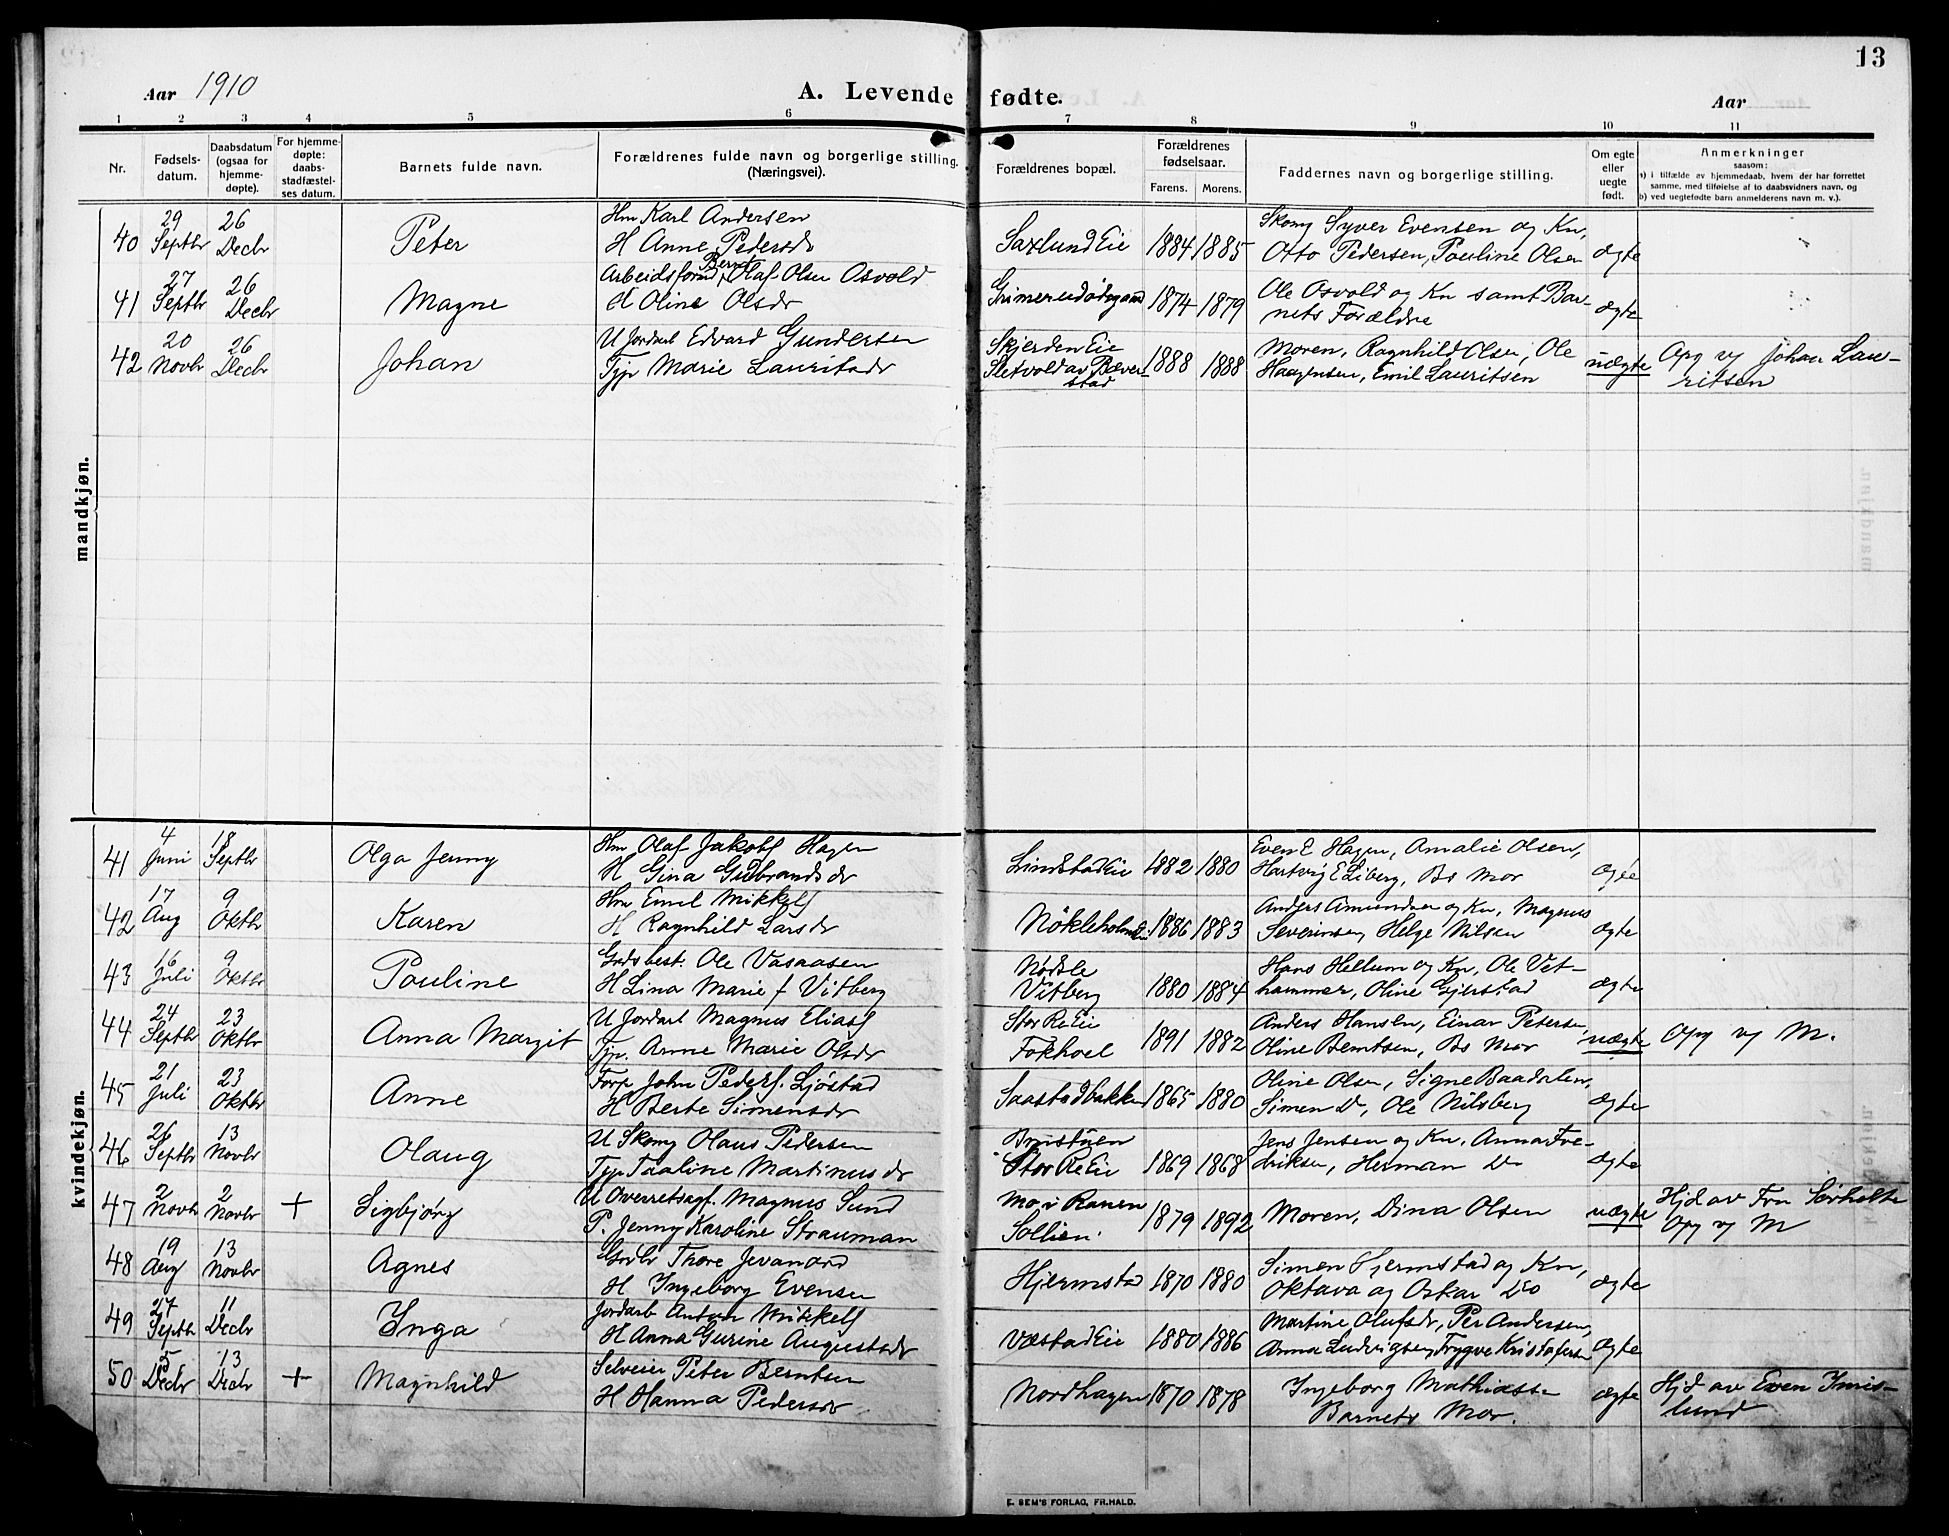 13
Aar 1910
A. Levende fødte.
Aar
1 2 3 4 5 6 7 8 9 10 11
Nr.
Fødsels-
datum.
Daabsdatum
(ogsaa for
hjemme-
døpte).
For hjemme-
døpte:
daabs-
stadfæstel-
ses datum.
Barnets fulde navn.
Forældrenes fulde navn og borgerlige stilling.
(Næringsvei).
Forældrenes bopæl.
Forældrenes
fødselsaar.
Farens. Morens.
Faddernes navn og borgerlige stilling.
Om egte
eller
uegte
født.
Anmerkninger
saasom:
a) i tilfælde av hjemmedaab, hvem der har forrettet
samme, med tilføielse af to daabsvidners navn, og
b) ved uegtefødte barn anmelderens navn m. v.).
mandkjøn.
40 29 Septbr 26 Decbr Peter
Hm Karl Andersen
H Anne Pedersdr
Saxlund Eie 1884 1885
Skomg Syver Evensen og Kn,
Otto Pedersen, Pauline Olsen
ægte
41 27 Septbr 26 Decbr Magne
Arbeidsform Bernt Olaf Olsen Osvold
H Oline Olsdr
Grimerudødegaard 1874 1879
Ole Osvold og Kn samt Bar-
nets Forældre
ægte
42 20 Novbr 26 Decbr Johan
U Jordarb Edvard Gundersen
Tjp Marie Lauritsdr
Skjerden Eie
Sletvold av Bæver-
stad
1888 1888
Moren, Ragnhild Olsen, Ole
Haagensen, Emil Lauritsen
uægte
Opg v Johan Lau-
ritsen
kvindekjøn.
41 4 Juni 18 Septbr Olga Jenny
Hm Olaf Jakobs Hagen
H Gina Gudbrandsdr
Lindstad Eie 1882 1880
Even E Hagen, Amalie Olsen,
Hartvig E Liberg, Bs Mor
ægte
42 17 Aug 9 Oktbr Karen
Hm Emil Mikkels
H Ragnhild Larsdr
Nökleholm 1886 1883
Anders Amundsen og Kn, Magnus
Severinsen, Helge Nilsen
ægte
43 16 Juli 9 Oktbr Pauline
Grdsbest. Ole Vasaasen
H Lina Marie f Vitberg
Nødsle
Vitberg
1880 1884
Hans Hellum og Kn, Ole Vet-
hammer, Oline Gjerstad
ægte
44 24 Septbr 23 Oktbr Anna Margit
U Jordarb Magnus Elias
Tjp. Anne Marie Olsdr
Stor Re Eie
Fokhoel
1891 1882
Anders Hansen, Einar Petersen,
Oline Berntsen, Bs Mor
uægte
Opg v M.
45 21 Juli 23 Oktbr Anne
Forp John Peders. Ljøstad
H Berte Simensdr
Saastadbakken 1865 1880
Oline Olsen, Signe Baadalen,
Simen Do, Ole Nilsberg
ægte
46 26 Septbr 13 Novbr Olaug
U Skomg Olaus Pedersen
Tjp Pauline Martinusdr
Stor Re Eie
1869 1868
Jens Jensen og Kn, Anna Fre-
driksen, Herman Do
ægte
47 2 Novbr 2 Novbr + Sigbjørg
U Overretssagf. Magnus Sund
P. Jenny Karoline Strauman
Mo i Ranen
Sollien.
1879 1892
Moren, Dina Olsen
uægte
Hjd av Fru Sørholte
Opg v M
48 19 Aug 13 Novbr Agnes
Grdbr Thore Jevanord
H Ingeborg Evensen
Hjermstad 1870 1880
Simen Hjermstad og Kn,
Oktava og Oskar Do
ægte
49 27 Septbr 11 Decbr Inga
Jordarb Anton Mikkels
H Anna Gurine Augustsdr
Væstad Eie 1880 1886
Martine Olufsdr, Per Andersen,
Anna Ludvigsen, Trygve Kristofersen
ægte
50 5 Decbr 13 Decbr + Magnhild
Selveier Peter Berntsen
H Hanna Pedersdr
Nordhagen 1870 1878
Ingeborg Mathiassen
Barnets Mor.
ægte
Hjd av Even Imis-
lund
E. SEM'S FORLAG, FR.HALD.